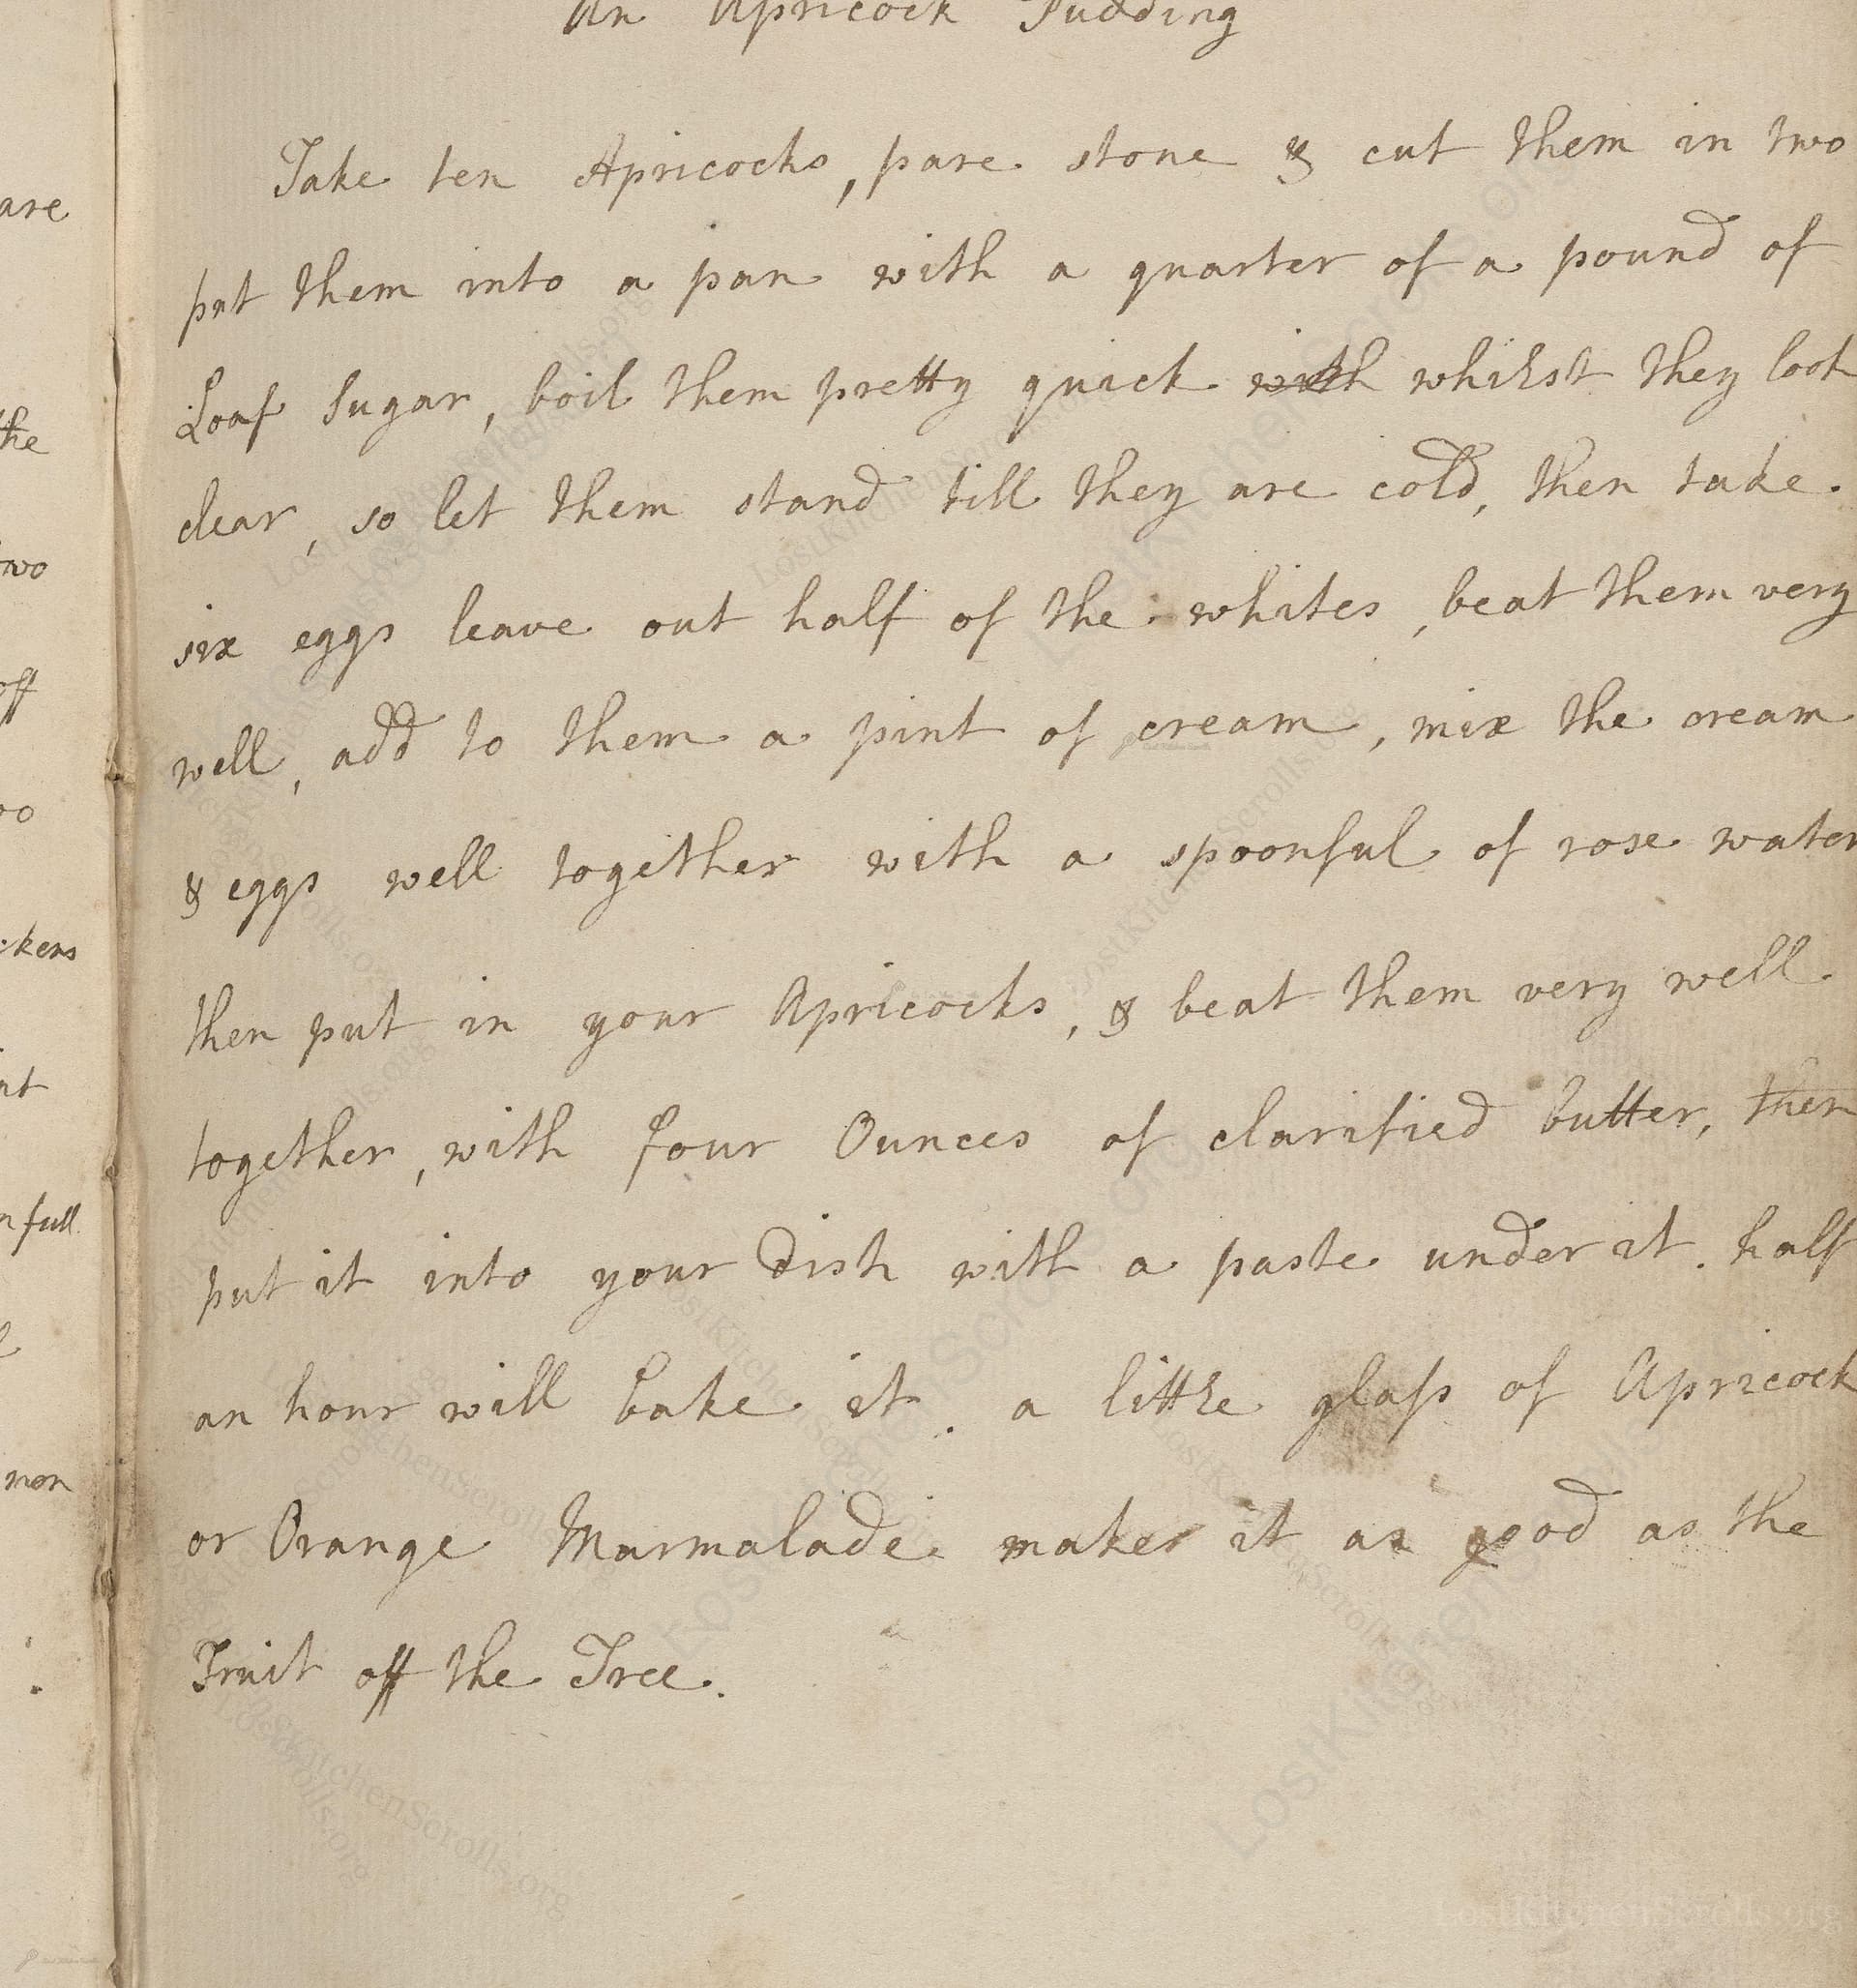 An Apricock Pudding
Take ten Apricocks, pare stone & cut them in two
put them into a pan with a quarter of a pound of
Loaf Sugar, boil them pretty quick with whilst they look
clear, so let them stand till they are cold, then take
six eggs leave out half of the whites, beat them very
well, add to them a pint of cream, mix the cream
& eggs well together with a spoonful of rose water
then put in your Apricocks, & beat them very well
together, with four Ounces of clarified butter, then
put it into your Dish with a paste under it. half
an hour will bake it. a little glass of Apricock
or Orange Marmalade makes it as good as the
Fruit off the Tree.
are
the
two
off
kens
full
LostKitchenScrolls.org